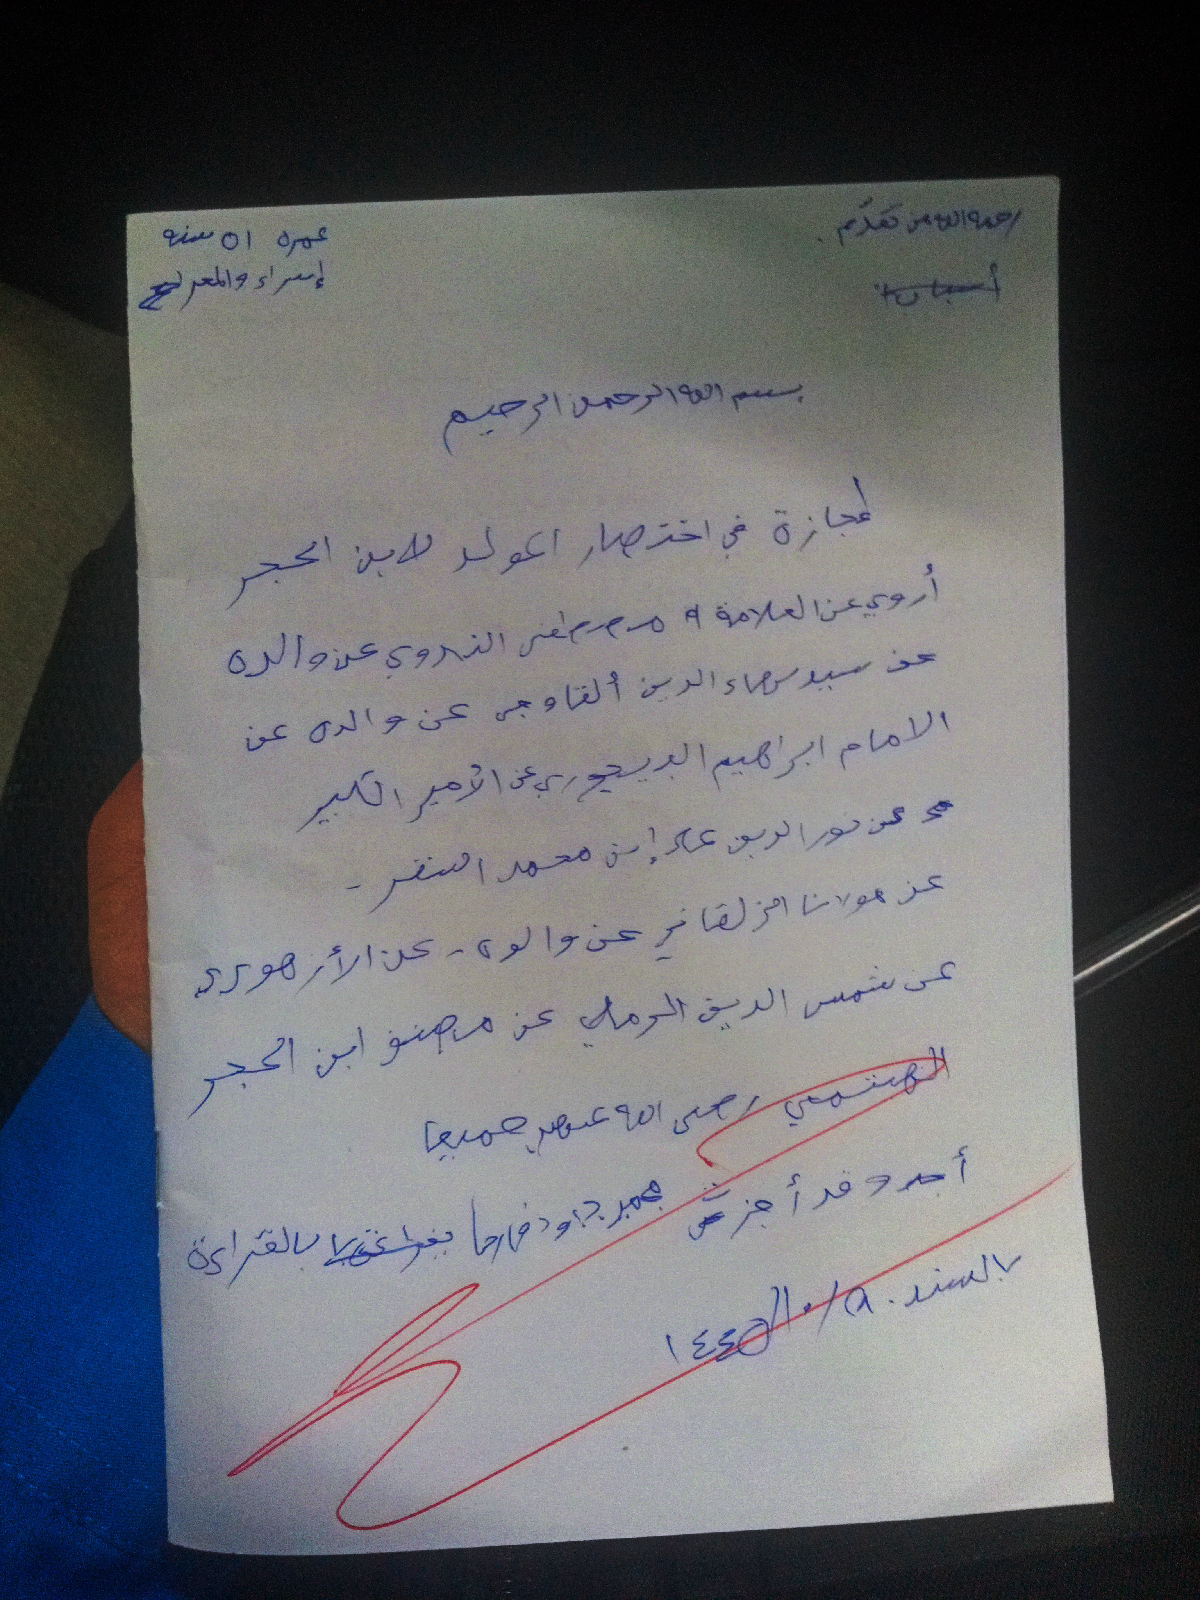 رحمة الله من تقدّم.
عمره ٥١ سنه
إسراء والمعراج
بسم الله الرحمن الرحيم
إجازة في اختصار المولد لابن الحجر
أروي عن العلامة مصطفى الندوي عن والده
عن سيد بهاء الدين ألقاوجي عن والده عن
الامام ابراهيم البيجوري عن الأمير الكبير
عن نور الدين علي إبن محمد السقر -
عن مولانا الزلقاني عن والده - عن الأزهوري
عن شمس الدين الرملي عن مصنف ابن الحجر
الهيتمي رضى الله عنهم جميعا
وقد أجزت محمد داود بالقراءة
بالسند. ١٤٤٥